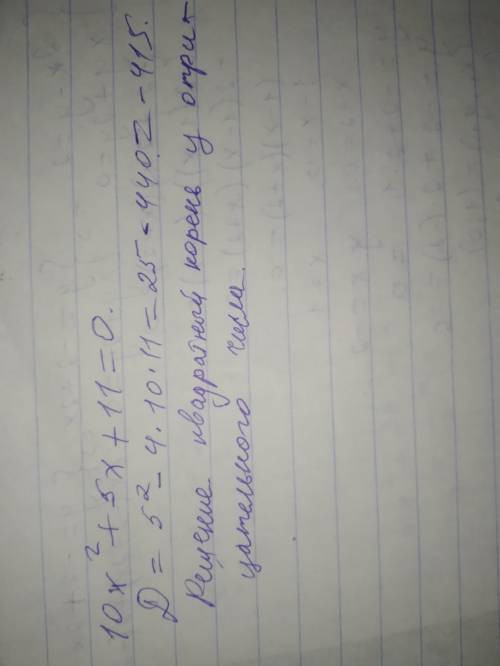 10x² + 5x + 11 = 0.
D = 5² - 4 · 10 · 11 = 25 - 440 = -415.
Решение квадратный корень у отри-
цательного числа.